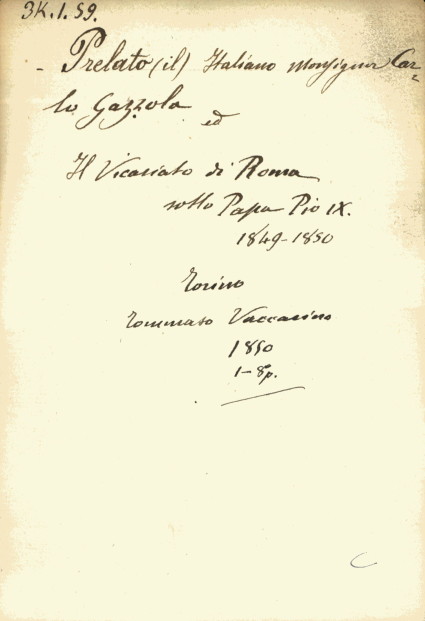 3K.1.59.
- Prelato (il) Italiano Monsignor Car-
lo Gazzola
ed
Il Vicariato di Roma
sotto Papa Pio IX.
1849-1850
Torino
Tommaso Vaccarino
1850
1-8p.